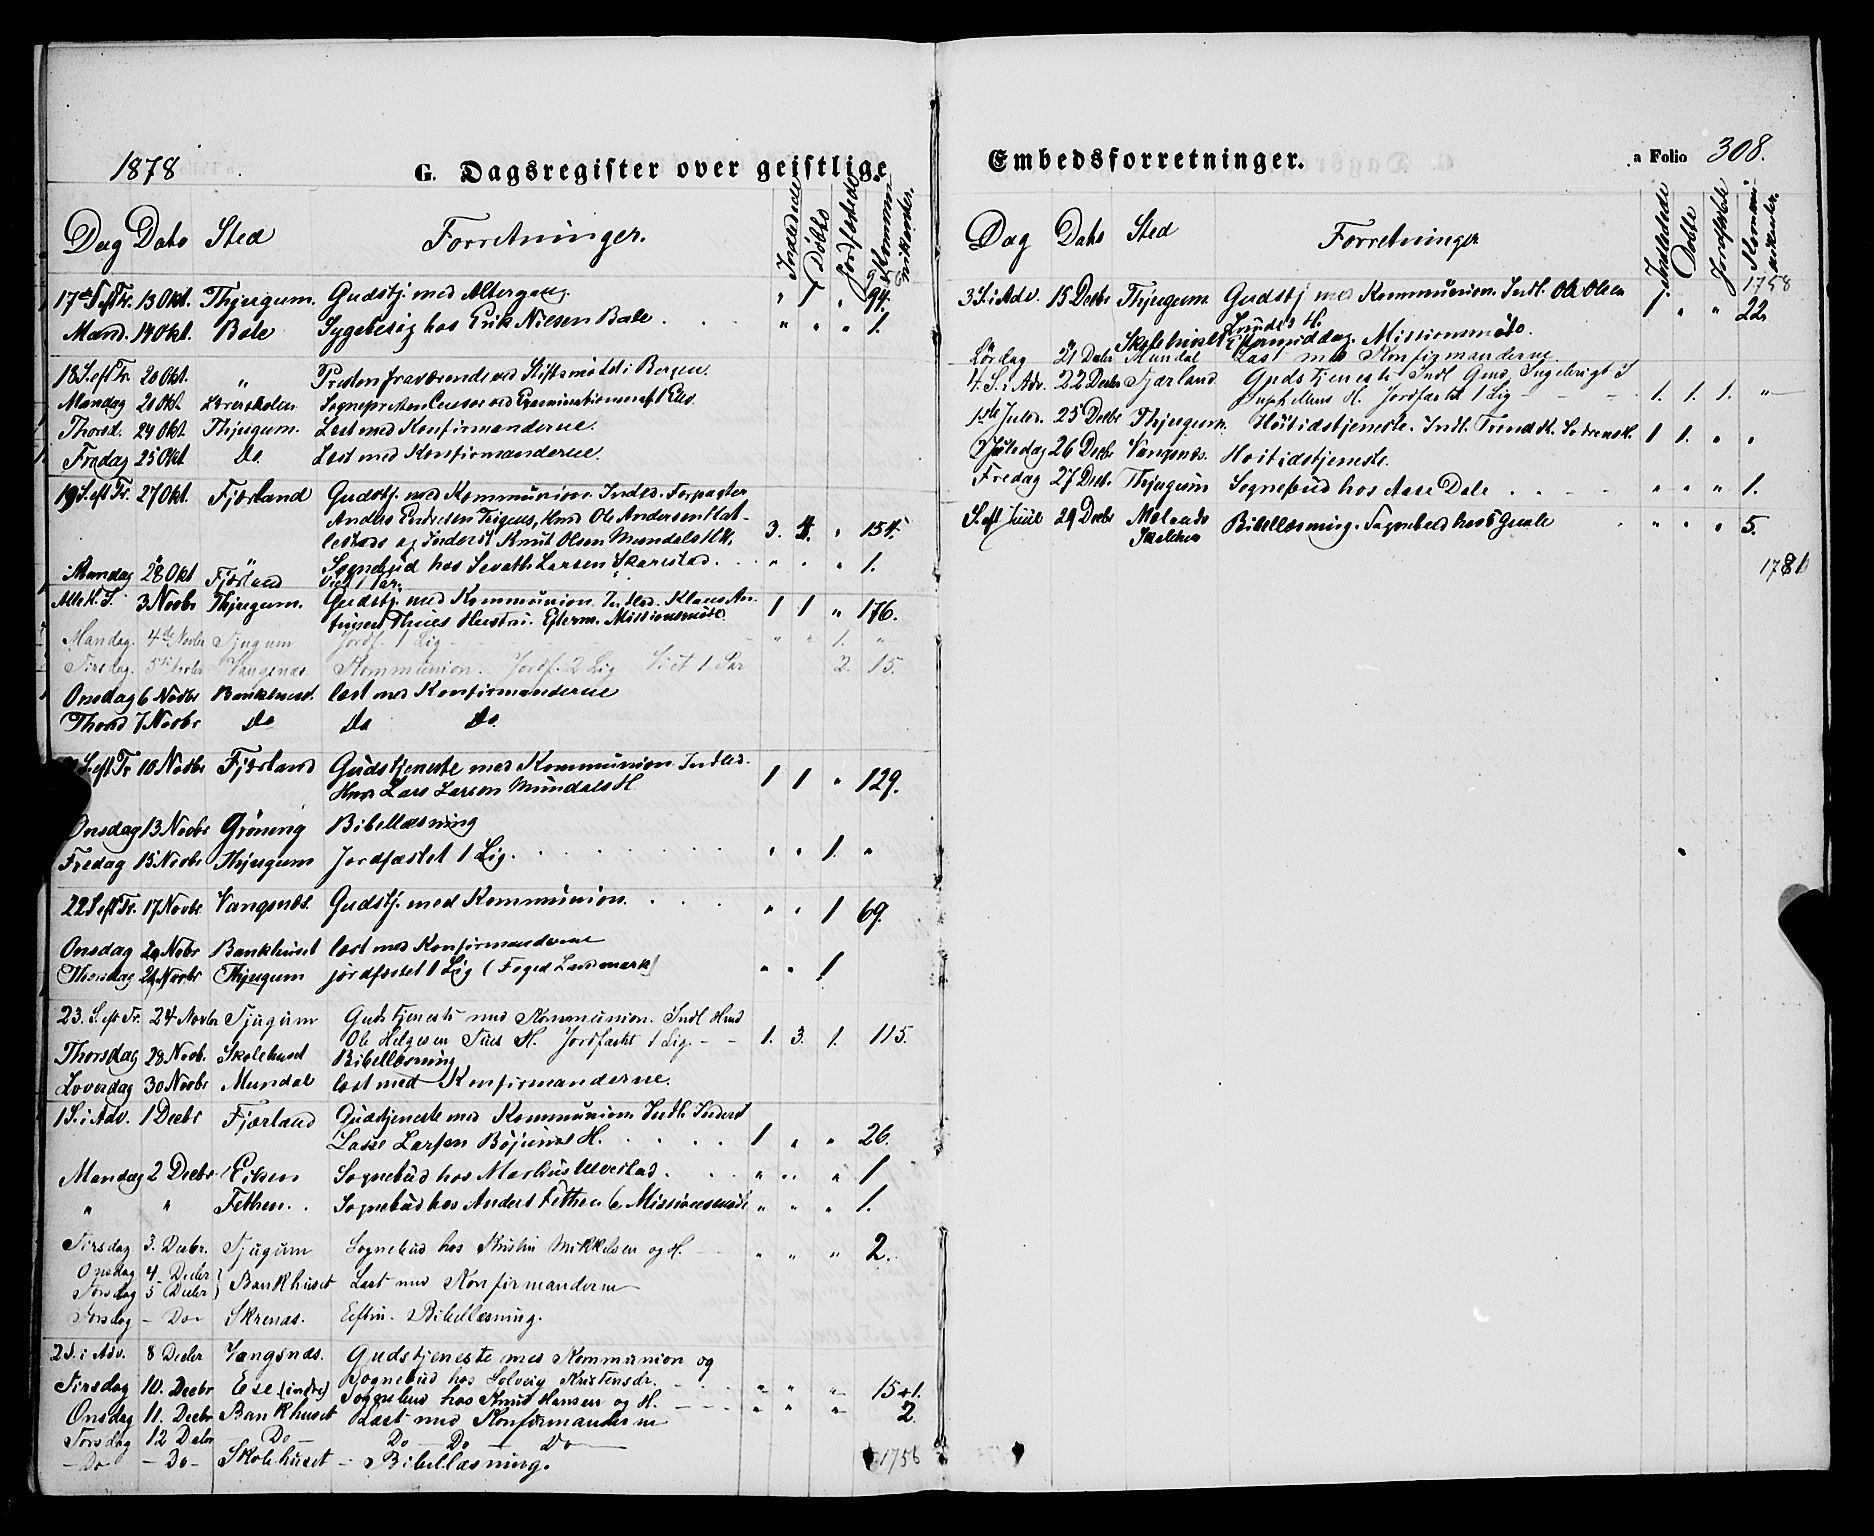 1878
G. Dagsregister over geistlige
Dag Dato Sted Forretninger. Indledede Døbte Jordfæstede Kommunikanter.
17de S. eft Tr. 13 Okt. Thjugum. Gudstj. med Altergang. " 1 " 94.
Mand. 14 Okt. Bale Sygebesøg hos Erik Nilsen Bale . . . " " " 1.
18 S. eft Tr. 20 Okt. " Presten fraværende ved Stiftsmødet i Bergen.
Mandag 20 Okt. Lærerskolen Sognepresten Censor ved Examinationen af 1 Elev.
Thorsd. 24 Okt. Thjugum. Læst med Konfirmanderne.
Fredag 25 Okt. Do. Læst med Konfirmanderne.
19 S. eft Tr. 27 Okt. Fjærland Gudstj. med Kommunion. Indled. Forpagter
Anders Endresen Hust. Ole Andersen
og Inderst Knut Olsen Mundals Hk. 3. 4. " 154.
Mandag 28 Okt Fjærland Sognebud hos Larsen Skarestad. . . " " " 1.
Viet 1 Par.
Alle H. S. 3 Novbr Thjugum. Gudstj. med Kommunion. Indled. Klaus
Hustru. Efterm. Missionsmøde. 1 1 " 176.
Mandag. 4de Novbr Tjugum Jordf. 1 Lig - " " 1. "
Tirsdag. 5te Novbr Vangsnæs Kommunion. Jordf. 2 Lig Viet 1 Par 2. 15.
Onsdag 6 Novbr Bankhuset. læst med Konfirmanderne
Thorsd 7 Novbr Do Do Do.
S. eft Tr 10 Novbr Fjærland Gudstjeneste med Kommunion Indled.
Lars Larsen Mundals H. 1 1 " 129.
Onsdag 13 Novbr Grøning Bibellæsning
Fredag 15 Novbr Thjugum Jordfæstet 1 Lig. . . . " " 1. "
22 S. eft Tr. 17 Novbr Vangsnæs. Gudstj. med Kommunion. . . . " " 1 69.
Onsdag 20 Novbr Bankhuset læst med Konfirmanderne
Thorsdag 21 Novbr Thjugum jordfæstet 1 Lig (Foged Landmark) " " 1
23. S. eft Tr. 24 Novbr Tjugum Gudstjeneste med Kommunion. Indl
Ole Helgesen H. Jordfæstet 1 Lig. - - 1. 3. 1. 115.
Thorsdag 28 Novb. Skolehuset Bibellæsning
Loverdag 30 Novbr Mundal læst med Konfirmanderne.
1 S. i Adv. 1 Decbr Fjærland Gudstjeneste med Kommunion Indl. Inderst
Lasse Larsen Bøjums H. . . . 1 " " 26.
Mandag 2 Decbr Eiken Sognebud hos Markus Ulvestad. . . " " " 1
" " Fethen. . Sognebud hos Anders Fethen & Missionsmøde " " " 1.
Tirsdag 3. Decbr. Tjugum Sognebud hos Mikkelsen og H. " " " 2.
Onsdag 4 Decbr
Torsdag 5 Decbr } Bankhuset Læst med Konfirmanderne
Torsdag - Do - Skrenas. Eftm. Bibellæsning.
2 S. i Adv. 8 Decbr Vangsnæs. Gudstjeneste med Kommunion og
Sognebud hos Solveig Kristensdr. - " " " 15+1.
Tirsdag 10. Decbr Ese (indre) Sognebud hos Knud Hansen og H. - " " " 2.
Onsdag 11. Decbr Bankhuset Læst med Konfirmanderne
Torsdag 12 Decbr - Do - Do - Do - Do
- Do - Do - Skolehuset - Bibellæsning.
1758
Embedsforretninger.
a Folio 308.
Dag Dato Sted Forretninger Indledede Døbte Jordfæstede Kommunikanter
1758
3 S. i Adv. 15 Decbr Thjugum Gudstj med Kommunion. Indl. Ole Olsen
H. 1 " " 22
" Skolehuset Eftermiddag. Missionsmøde.
Lördag 21 Decbr Mundal Læst med Konfirmanderne.
4. S. i Adv. 22 Decbr Fjærland Gudstjeneste Indl Gmd. Ingebrigt
H. Jordfæstet 1 Lig - 1. 1. 1. "
1ste Juled. 25 Decbr Thjugum. Höitidstjeneste. Indl. 1 1. " "
2 Juledag 26 Decbr Vangsnæs. Høitidstjeneste.
Fredag 27 Decb. Thjugum Sognebud hos Aase Dale . . . " " " 1.
S. eft Juul 29 Decbr Skolehus Bibellæsning. Sognebud hos 5 " " " 5.
1786